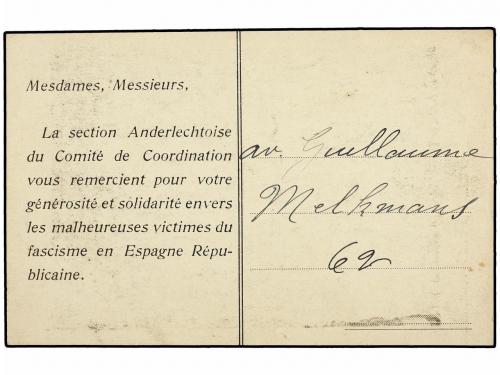 Mesdames, Messieurs,
La section Anderlechtoise
du Comité de Coordination
vous remercient pour votre
générosité et solidarité envers
les malheureuses victimes du
fascisme en Espagne Répu-
blicaine.
av. Guillaume
Melkmans
62